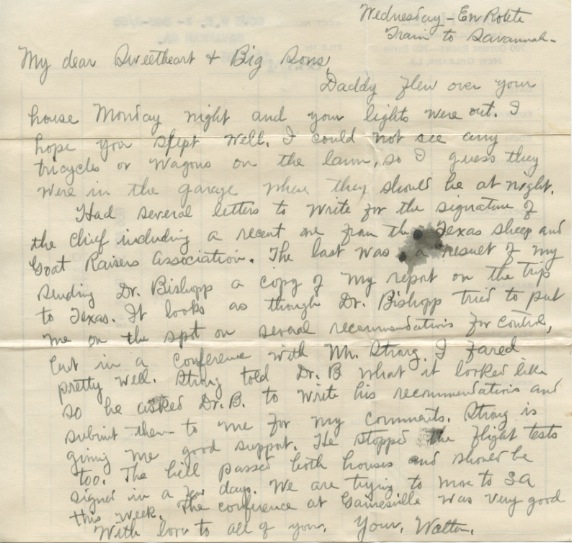 Wednesday - En Route
Train to Savannah.
My dear Sweetheart & Big Sons
Daddy flew over your
house Monday night and your lights were out. I
hope you slept well. I could not see any
tricycles or wagons on the lawn, so I guess they
were in the garage where they should be at night.
Had several letters to write for the signature of
the Chief including a recent one from the Texas Sheep and
Goat Raisers Association. The last was a result of my
sending Dr. Bishopp a copy of my report on the trip
to Texas. It looks as though Dr. Bishopp tried to put
me on the spot on several recommendations for control,
but in a conference with Mr. Strong I fared
pretty well. Strong told Dr. B what it looked like
so he asked Dr. B. to write his recommendations and
submit them to me for my comments. Strong is
giving me good support. He stopped the flight tests
too. The bill passed both houses and should be
signed in a few days. We are trying to move to SA
this week. The conference at Gainesville was very good
With love to all of you. Your, Walton.